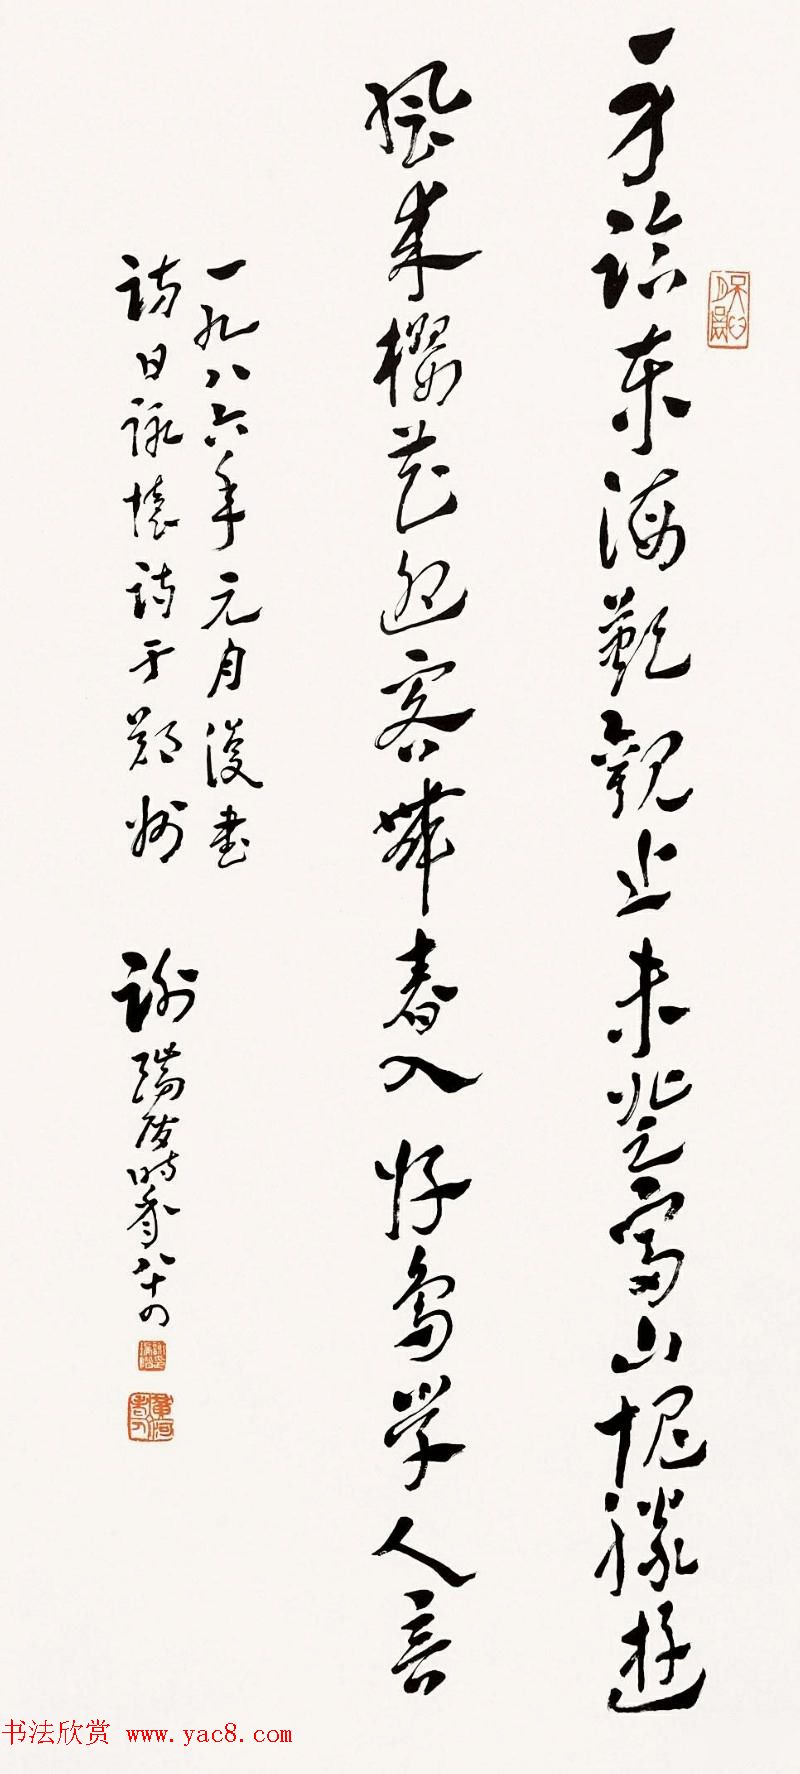 一身临东海欢观止未登富山愧胜游
风来樱花迎客舞春入怀鸟学人言
一九八六年元月复书
访日咏怀诗于郑州
谢瑞阶时年八十四
书法欣赏 www.yac8.com